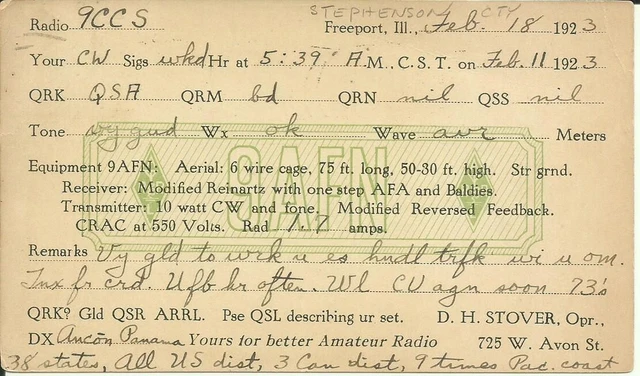 STEPHENSON CTY
Radio 9CCS Freeport, Ill., Feb. 18 1923
Your CW Sigs wkd Hr at 5:39 A.M., C.S.T. on Feb. 11 1923
QRK QSA QRM bd QRN nil QSS nil
Tone vy gud Wx ok Wave avr Meters
9AFN
Equipment 9AFN: Aerial: 6 wire cage, 75 ft. long, 50-30 ft. high. Str grnd.
Receiver: Modified Reinartz with one step AFA and Baldies.
Transmitter: 10 watt CW and fone. Modified Reversed Feedback.
CRAC at 550 Volts. Rad 1.7 amps.
Remarks Vy gld to wrk u es hndl trfk wi u om.
Tnx fr crd. Ufb hr often. Wl CU agn soon 73's
QRK? Gld QSR ARRL. Pse QSL describing ur set. D. H. STOVER, Opr.,
DX Ancon Panama Yours for better Amateur Radio 725 W. Avon St.
38 states, All US dist, 3 Can dist, 9 times Pac. coast